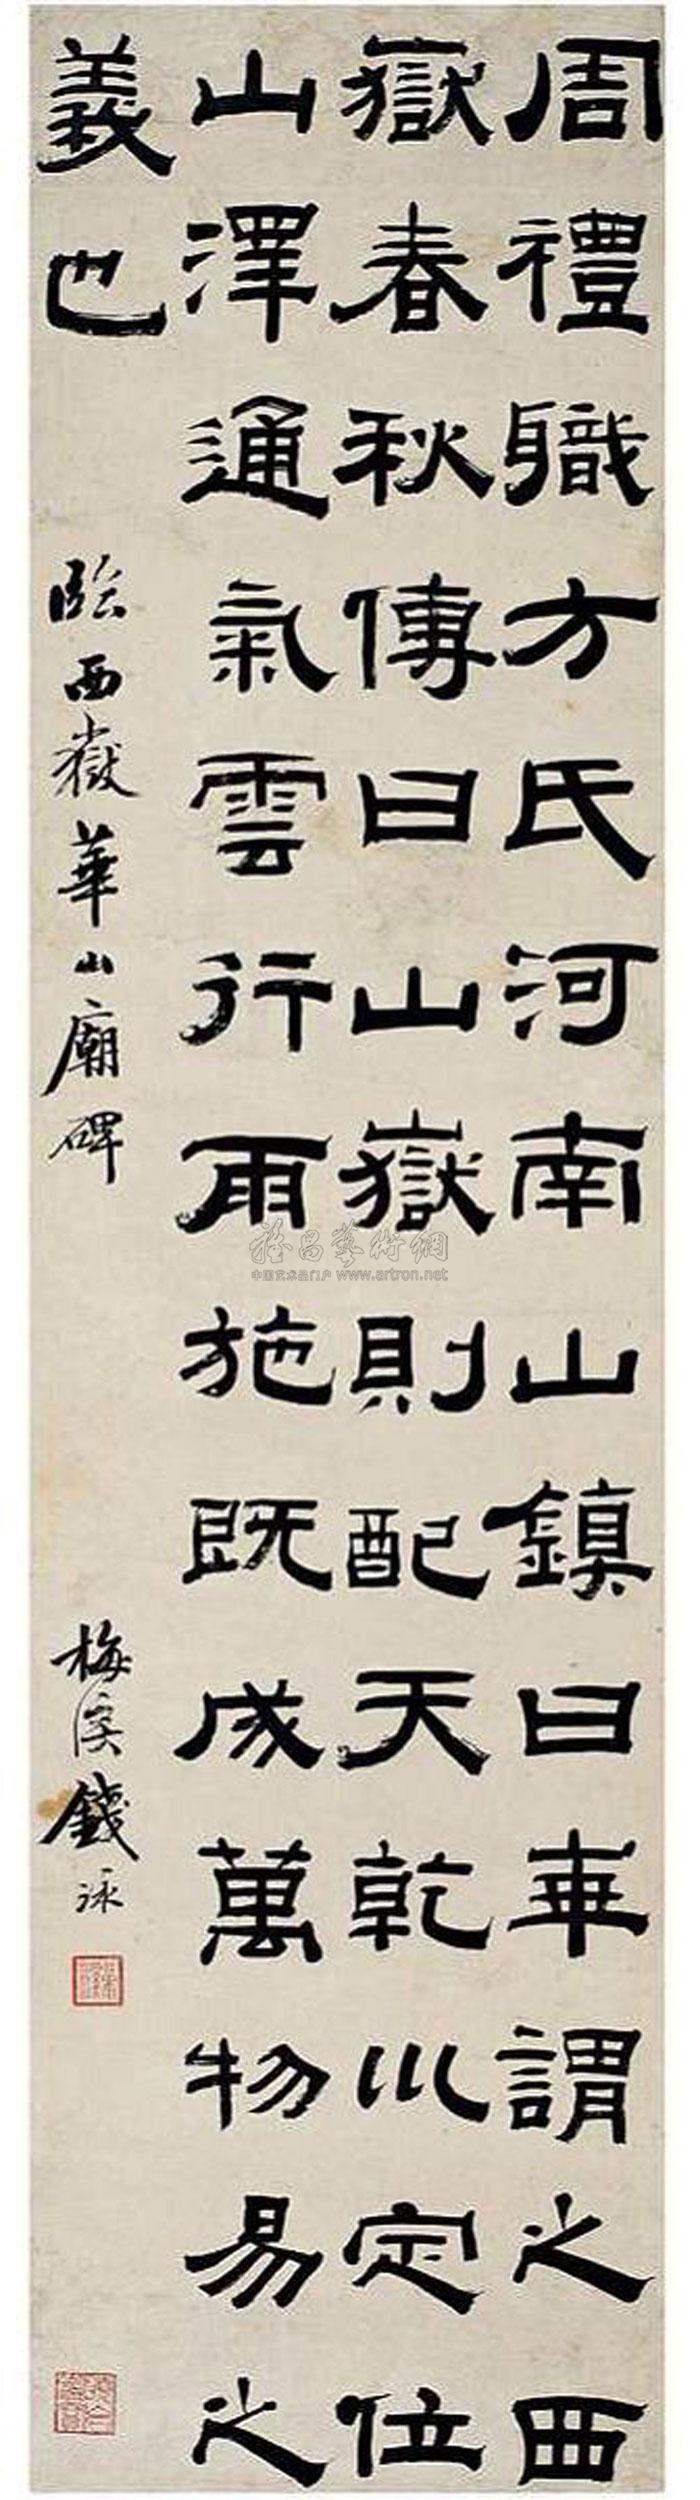 周禮職方氏河南山鎮曰華謂之西
嶽春秋傳曰山嶽則配天乾川定位
山澤通氣雲行雨施既成萬物易之
義也
臨西嶽華山廟碑
梅溪錢泳
雅昌藝術網
中国艺术品门户 www.artron.net